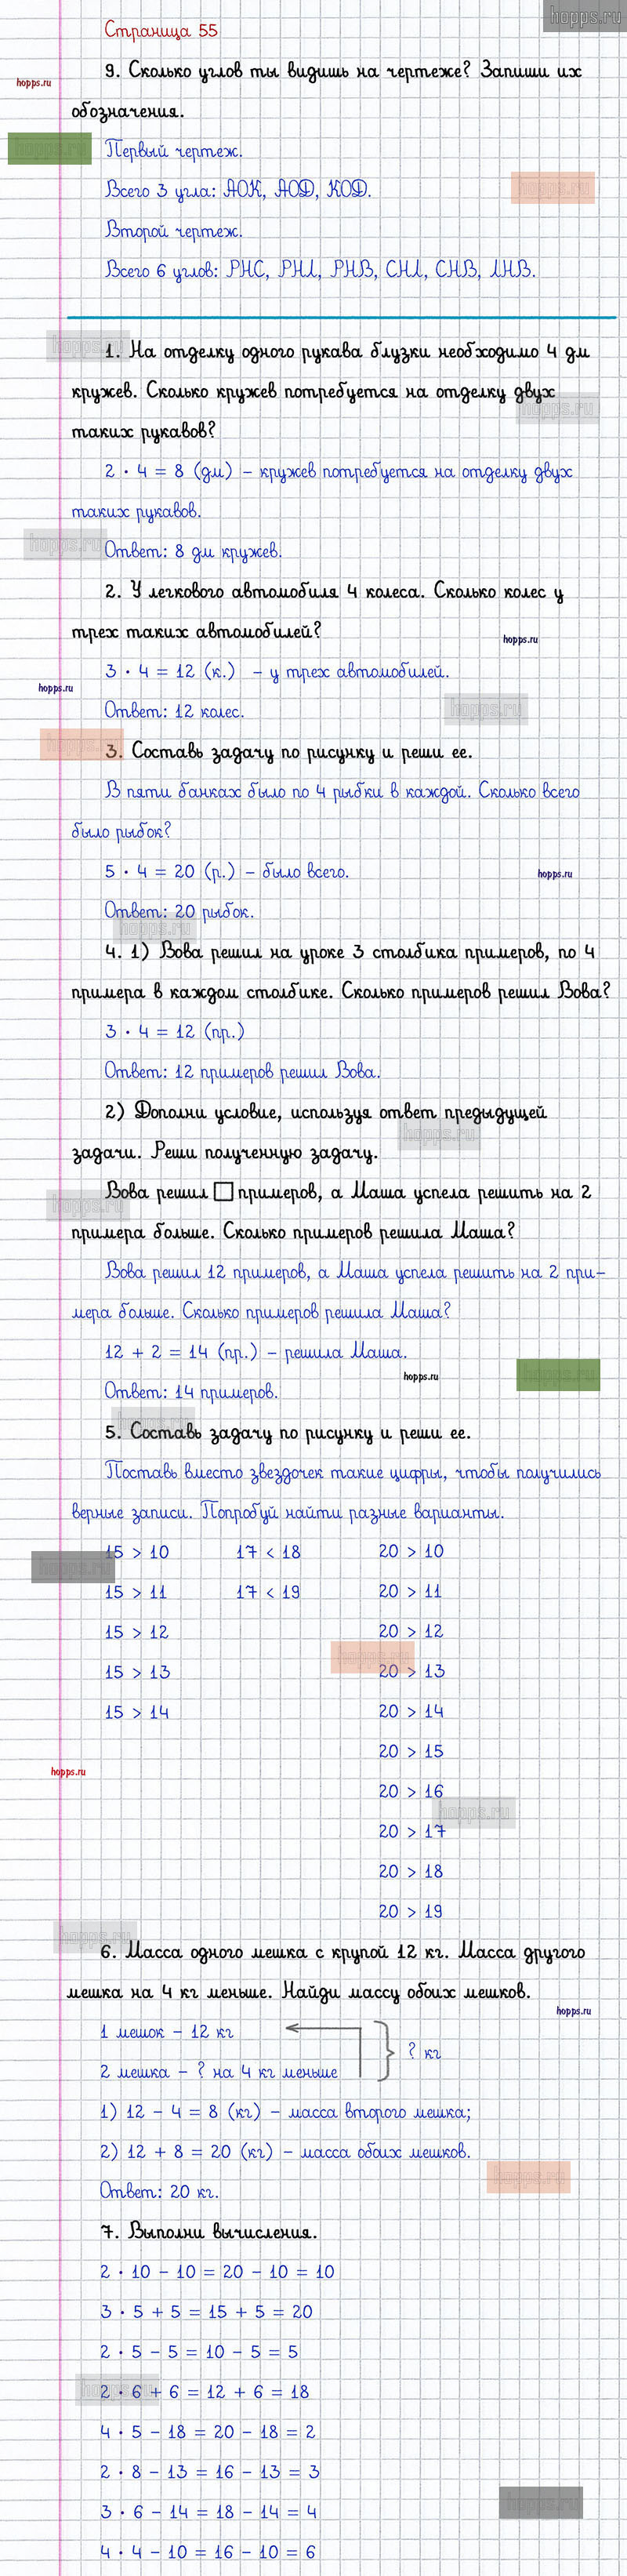 hopps.ru
Страница 55
9. Сколько углов ты видишь на чертеже? Запиши их
hopps.ru
обозначения.
hopps.ru
Первый чертеж.
Всего 3 угла: АОК, АОД, КОД.
hopps.ru
Второй чертеж.
Всего 6 углов: РНС, РНЛ, РНВ, СНЛ, СНВ, ЛНВ.
hopps.ru
1. На отделку одного рукава блузки необходимо 4 дм
кружев. Сколько кружев потребуется на отделку двух
hopps.ru
таких рукавов?
2 · 4 = 8 (дм) – кружев потребуется на отделку двух
таких рукавов.
hopps.ru
Ответ: 8 дм кружев.
2. У легкового автомобиля 4 колеса. Сколько колес у
трех таких автомобилей?
hopps.ru
3 · 4 = 12 (к.) – у трех автомобилей.
hopps.ru
Ответ: 12 колес.
hopps.ru
hopps.ru
3. Составь задачу по рисунку и реши ее.
В пяти банках было по 4 рыбки в каждой. Сколько всего
было рыбок?
5 · 4 = 20 (р.) – было всего.
hopps.ru
Ответ: 20 рыбок.
hopps.ru
4. 1) Вова решил на уроке 3 столбика примеров, по 4
примера в каждом столбике. Сколько примеров решил Вова?
3 · 4 = 12 (пр.)
Ответ: 12 примеров решил Вова.
2) Дополни условие, используя ответ предыдущей
hopps.ru
задачи. Реши полученную задачу.
hopps.ru
Вова решил □ примеров, а Маша успела решить на 2
примера больше. Сколько примеров решила Маша?
Вова решил 12 примеров, а Маша успела решить на 2 при-
мера больше. Сколько примеров решила Маша?
12 + 2 = 14 (пр.) – решила Маша.
hopps.ru
hopps.ru
Ответ: 14 примеров.
hopps.ru
5. Составь задачу по рисунку и реши ее.
Поставь вместо звездочек такие цифры, чтобы получились
верные записи. Попробуй найти разные варианты.
hopps.ru
15 > 10 17 < 18 20 > 10
15 > 11 17 < 19 20 > 11
15 > 12 20 > 12
hopps.ru
15 > 13 20 > 13
15 > 14 20 > 14
20 > 15
hopps.ru
20 > 16
hopps.ru
20 > 17
20 > 18
20 > 19
hopps.ru
6. Масса одного мешка с крупой 12 кг. Масса другого
мешка на 4 кг меньше. Найди массу обоих мешков.
hopps.ru
1 мешок – 12 кг
? кг
2 мешка – ? на 4 кг меньше
1) 12 – 4 = 8 (кг) – масса второго мешка;
2) 12 + 8 = 20 (кг) – масса обоих мешков.
hopps.ru
Ответ: 20 кг.
7. Выполни вычисления.
2 · 10 – 10 = 20 – 10 = 10
3 · 5 + 5 = 15 + 5 = 20
2 · 5 – 5 = 10 – 5 = 5
hopps.ru
2 · 6 + 6 = 12 + 6 = 18
4 · 5 – 18 = 20 – 18 = 2
2 · 8 – 13 = 16 – 13 = 3
hopps.ru
3 · 6 – 14 = 18 – 14 = 4
4 · 4 – 10 = 16 – 10 = 6